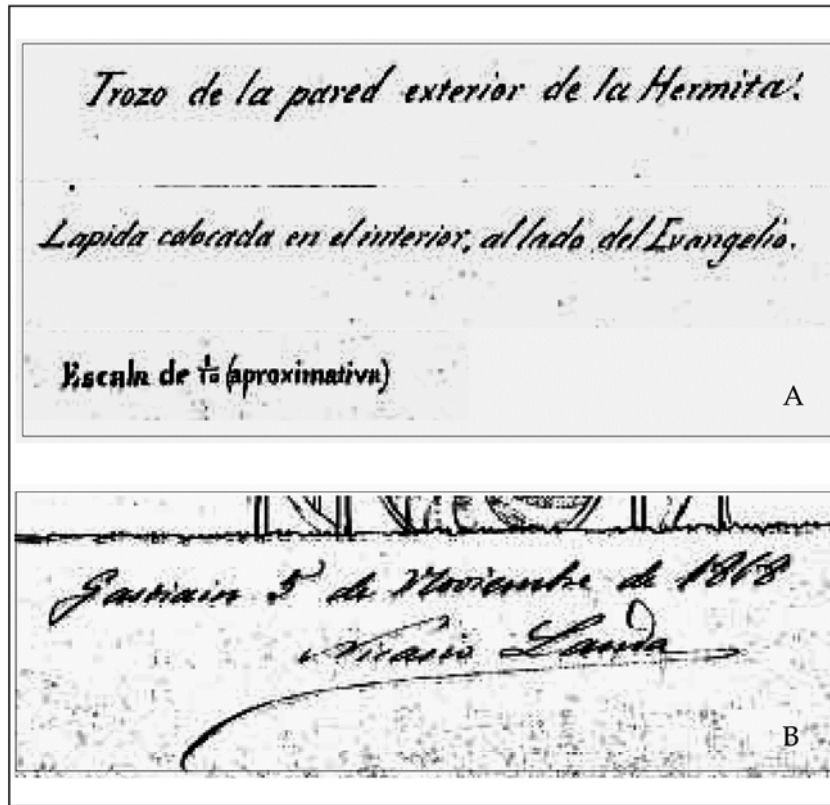 Trozo de la pared exterior de la Hermita.
Lapida colocada en el interior, al lado del Evangelio.
Escala de 1/10 (aproximativa)
A
Gastiain 5 de Noviembre de 1868
Nicasio Landa
B